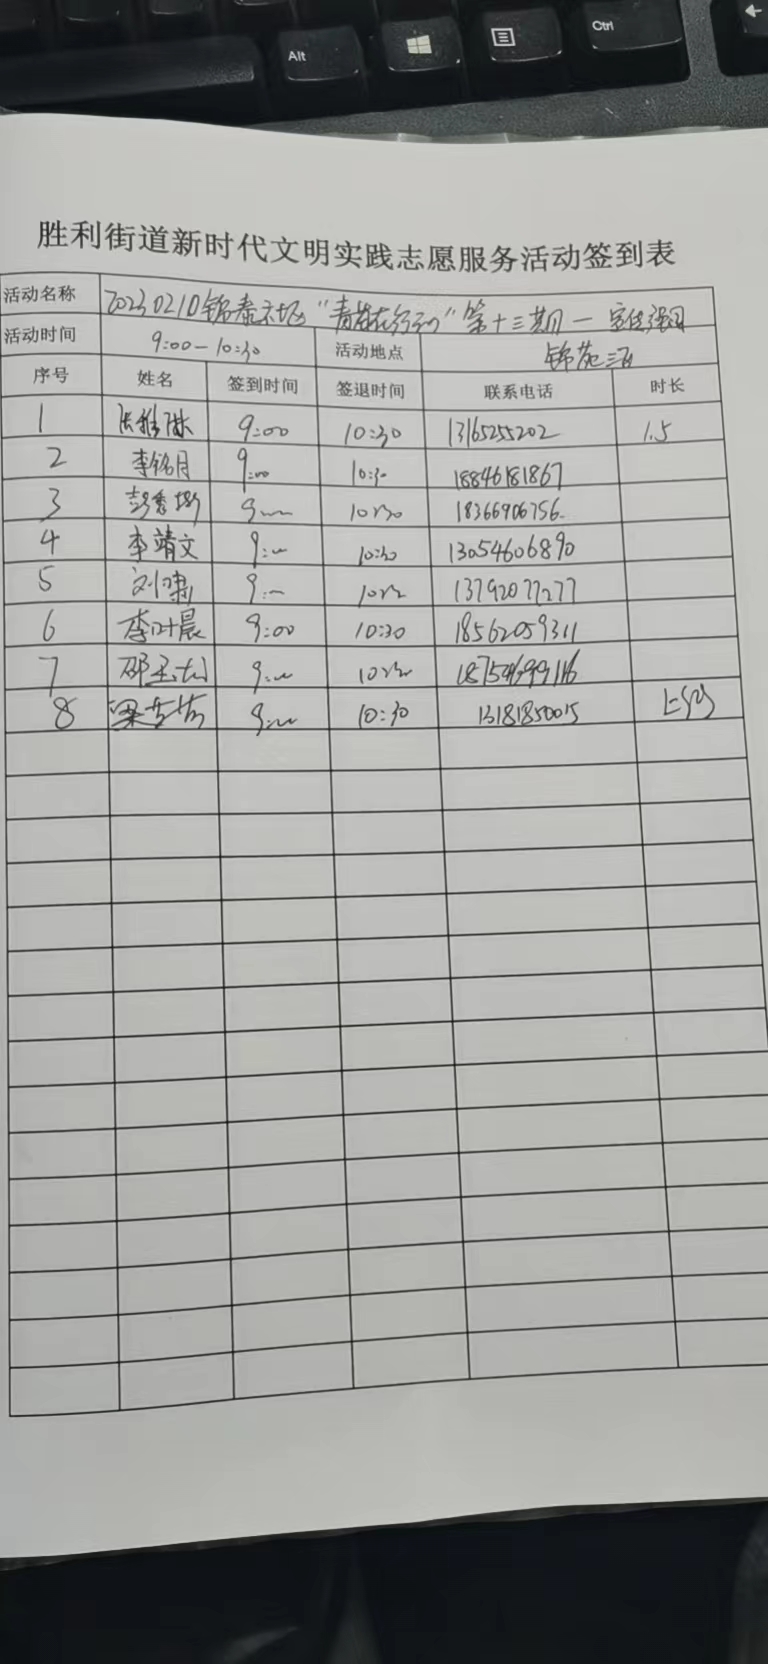 Alt
Ctrl
胜利街道新时代文明实践志愿服务活动签到表
活动名称 20230210锦泰社区“青年在行动”第十三期一
活动时间 9:00-10:30 活动地点 锦苑三区
序号 姓名 签到时间 签退时间 联系电话 时长
1 9:00 10:30 13165255202 1.5
2 李铭月 9:00 10:30 18846181867
3 10:30 18366906756
4 李靖文 10:30 13054606890
5 刘啸 13792077277
6 李叶晨 9:00 10:30 18562059311
7 18754699116
8 10:30 13181850015